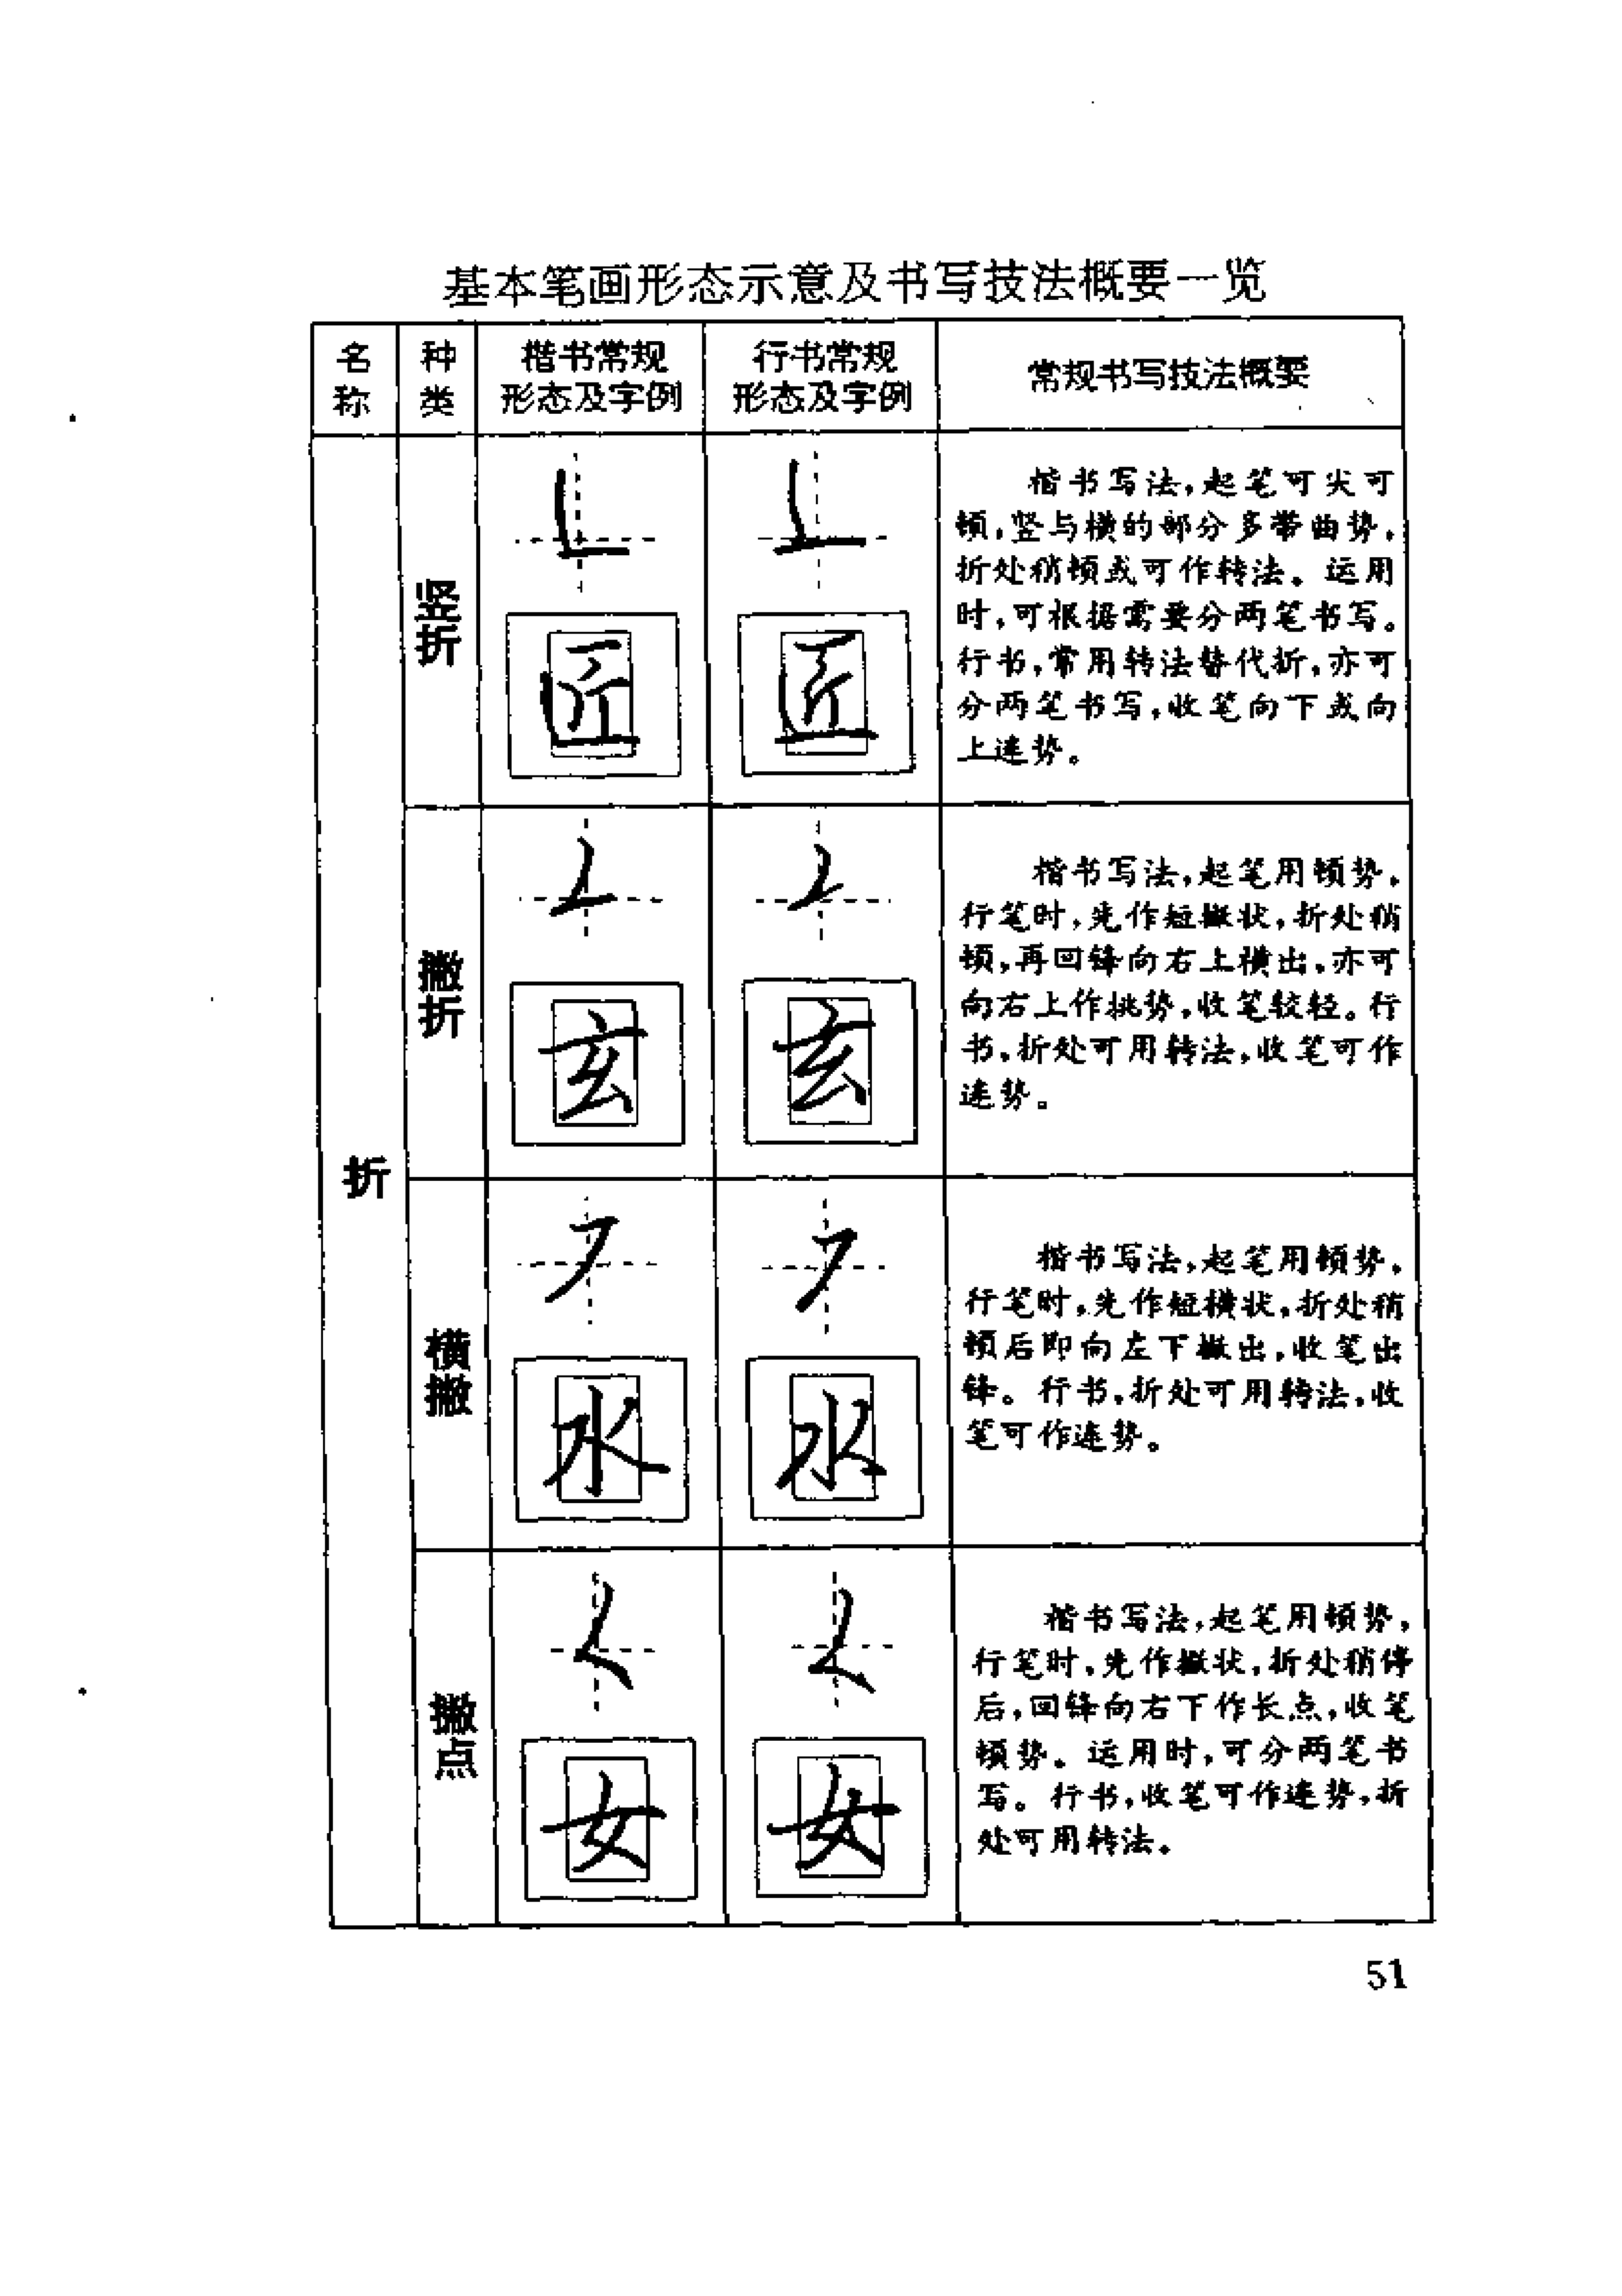 基本笔画形态示意及书写技法概要一览
名称
种类
楷书常规
形态及字例
行书常规
形态及字例
常规书写技法概要
折
竖折
匠
匠
楷书写法,起笔可尖可
顿,竖与横的部分多带曲势,
折处稍顿或可作转法。运用
时,可根据需要分两笔书写。
行书,常用转法替代折,亦可
分两笔书写,收笔向下或向
上连势。
撇折
玄
玄
楷书写法,起笔用顿势,
行笔时,先作短撇状,折处稍
顿,再回锋向右上横出,亦可
向右上作挑势,收笔较轻。行
书,折处可用转法,收笔可作
连势。
横撇
水
水
楷书写法,起笔用顿势,
行笔时,先作短横状,折处稍
顿后即向左下撇出,收笔出
锋。行书,折处可用转法,收
笔可作连势。
撇点
女
女
楷书写法,起笔用顿势,
行笔时,先作撇状,折处稍停
后,回锋向右下作长点,收笔
顿势。运用时,可分两笔书
写。行书,收笔可作连势,折
处可用转法。
51